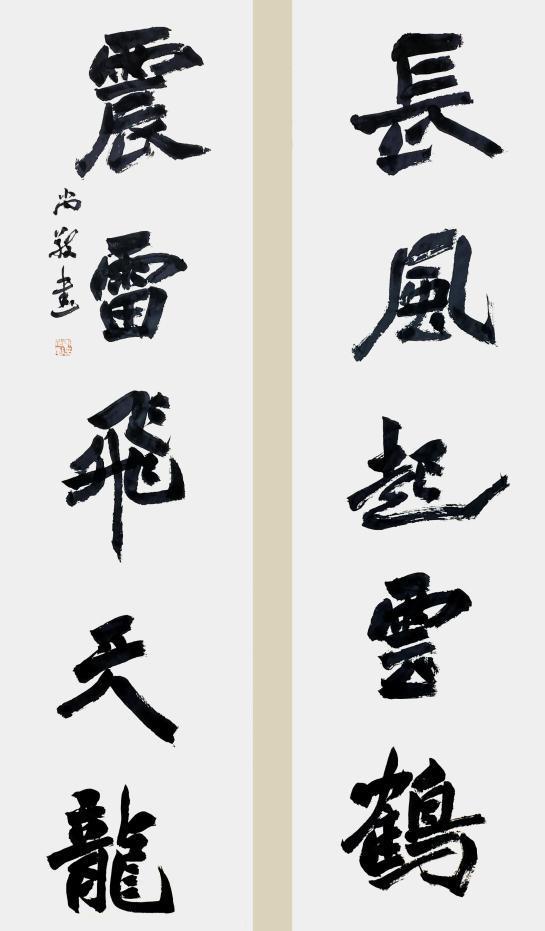 長風起雲鶴
震雷飛天龍
尚毅書